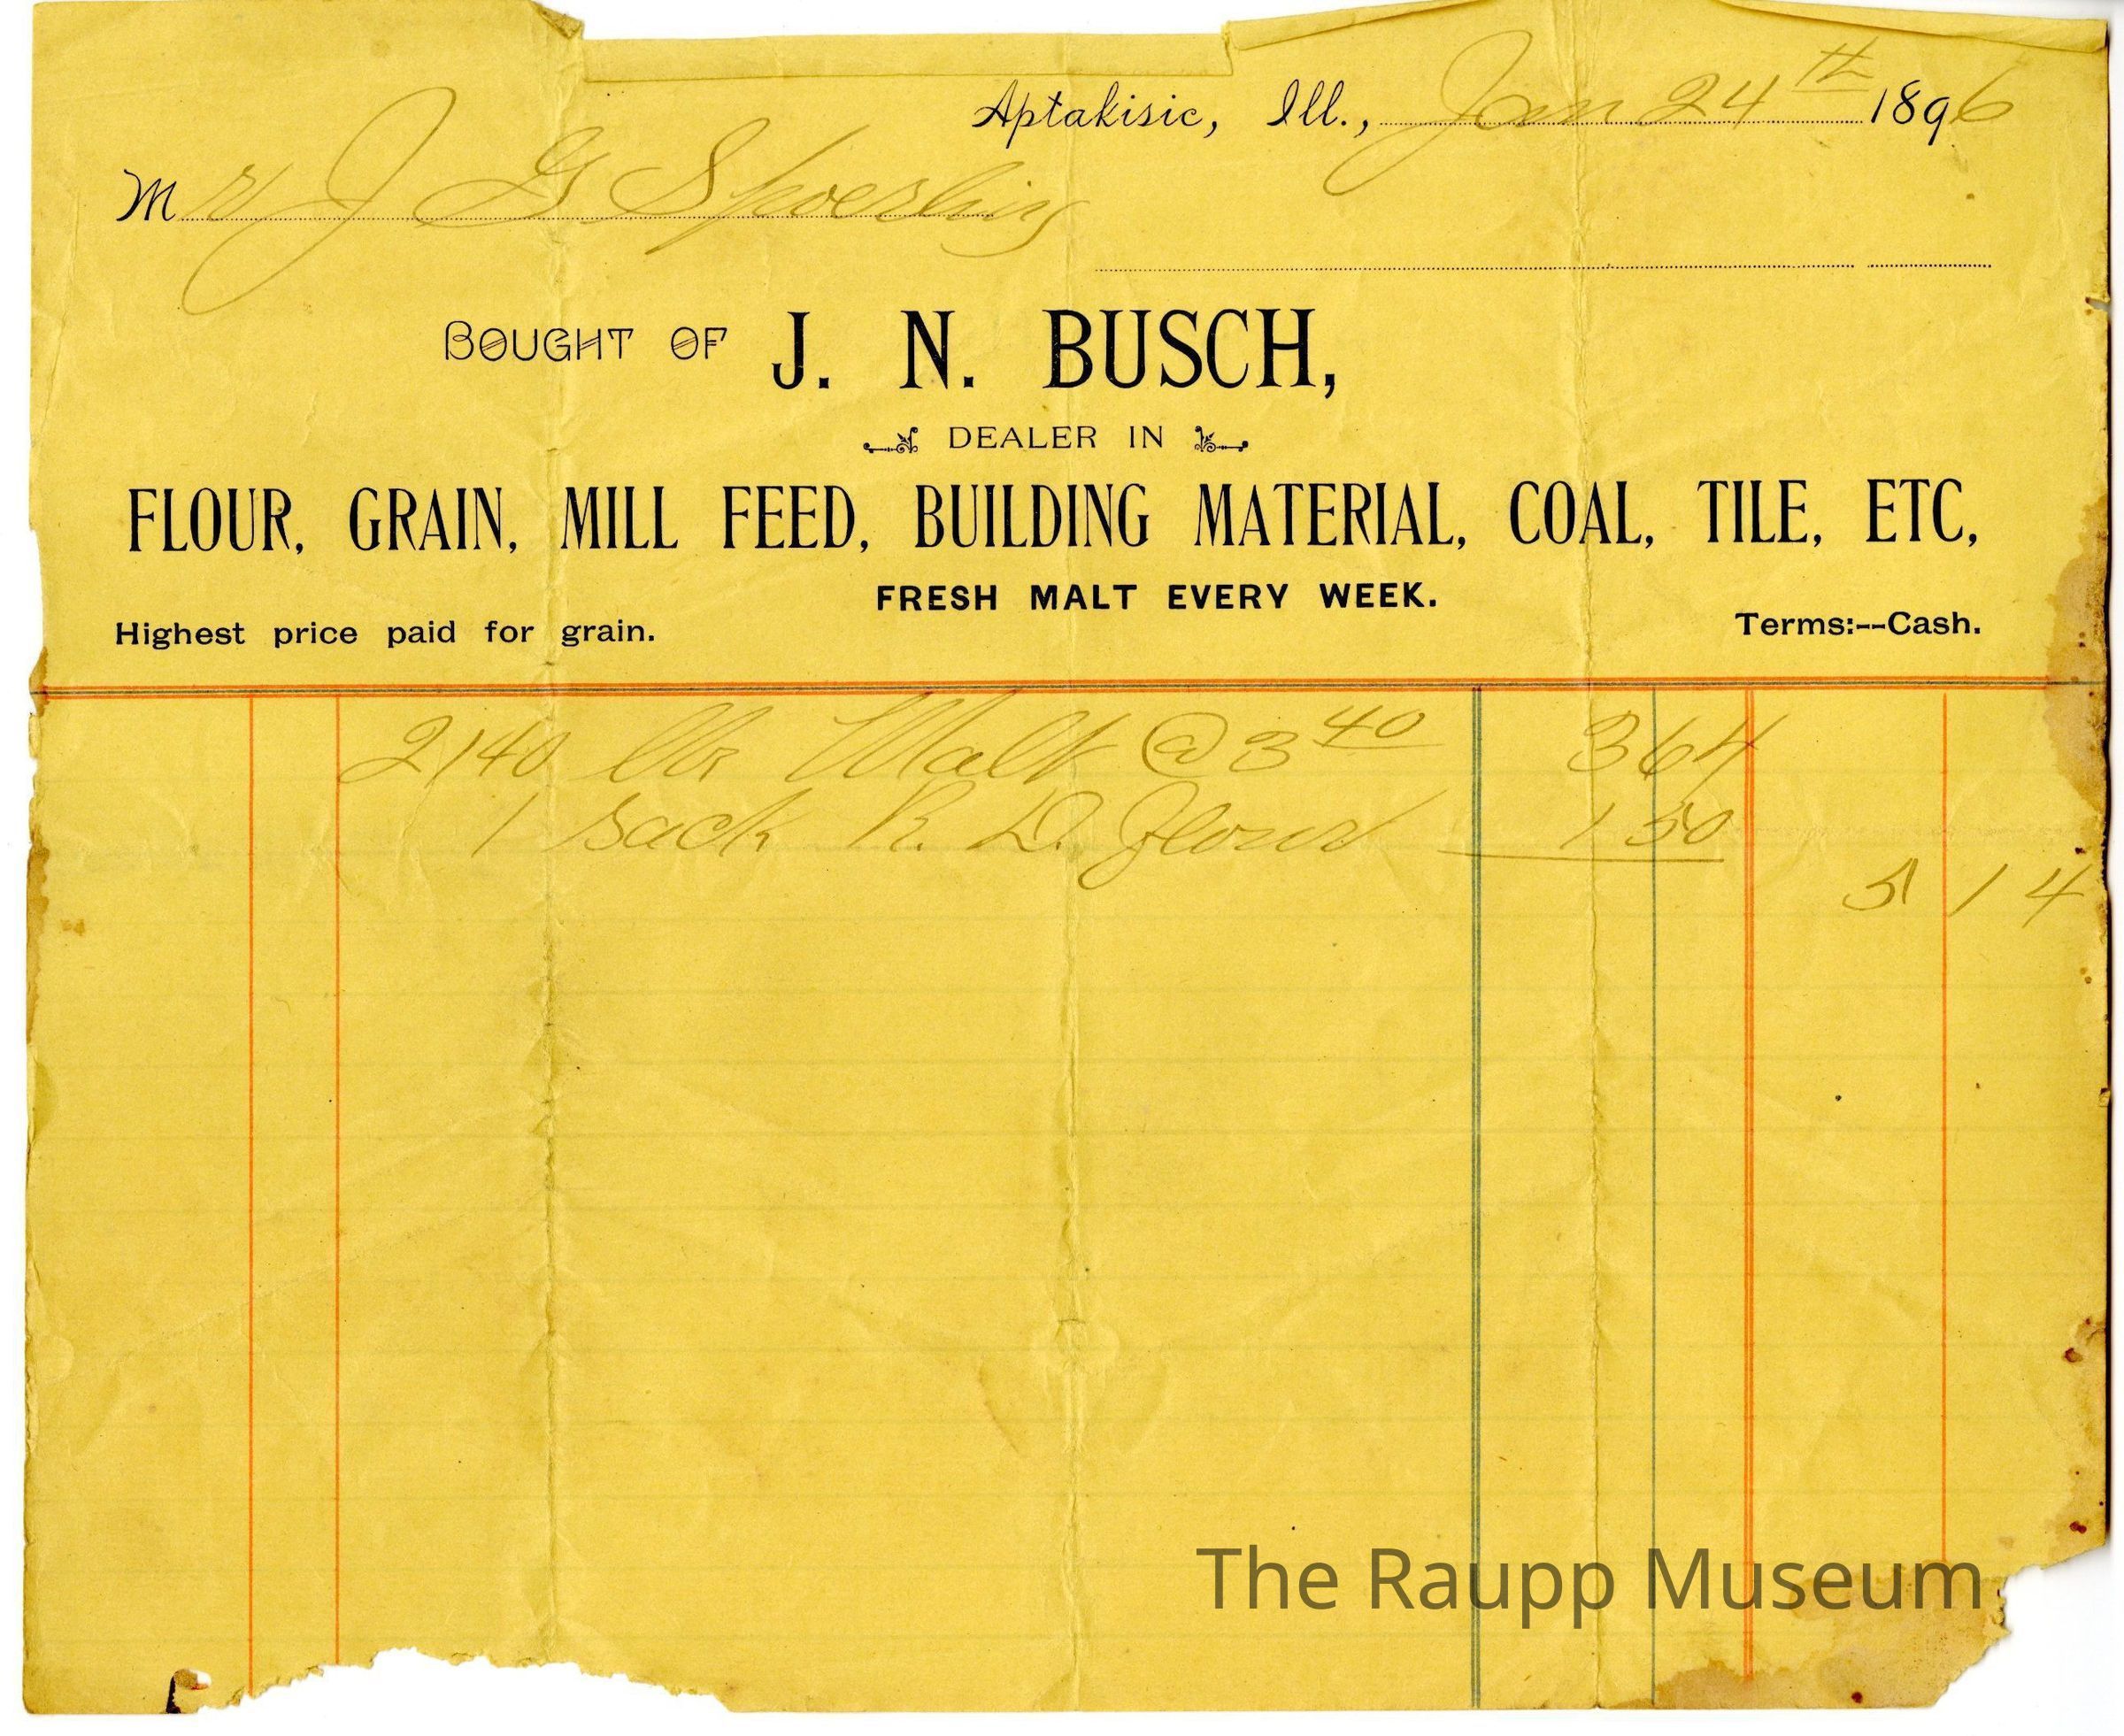 Aptakisic, Ill., Jan 24th 1896
Mr J G Spoerling
BOUGHT OF J. N. BUSCH,
DEALER IN
FLOUR, GRAIN, MILL FEED, BUILDING MATERIAL, COAL, TILE, ETC,
FRESH MALT EVERY WEEK.
Highest price paid for grain. Terms:--Cash.
Malt @ 3 40 3 64
1 sack R. D. Flour 1 50
5 14
The Raupp Museum